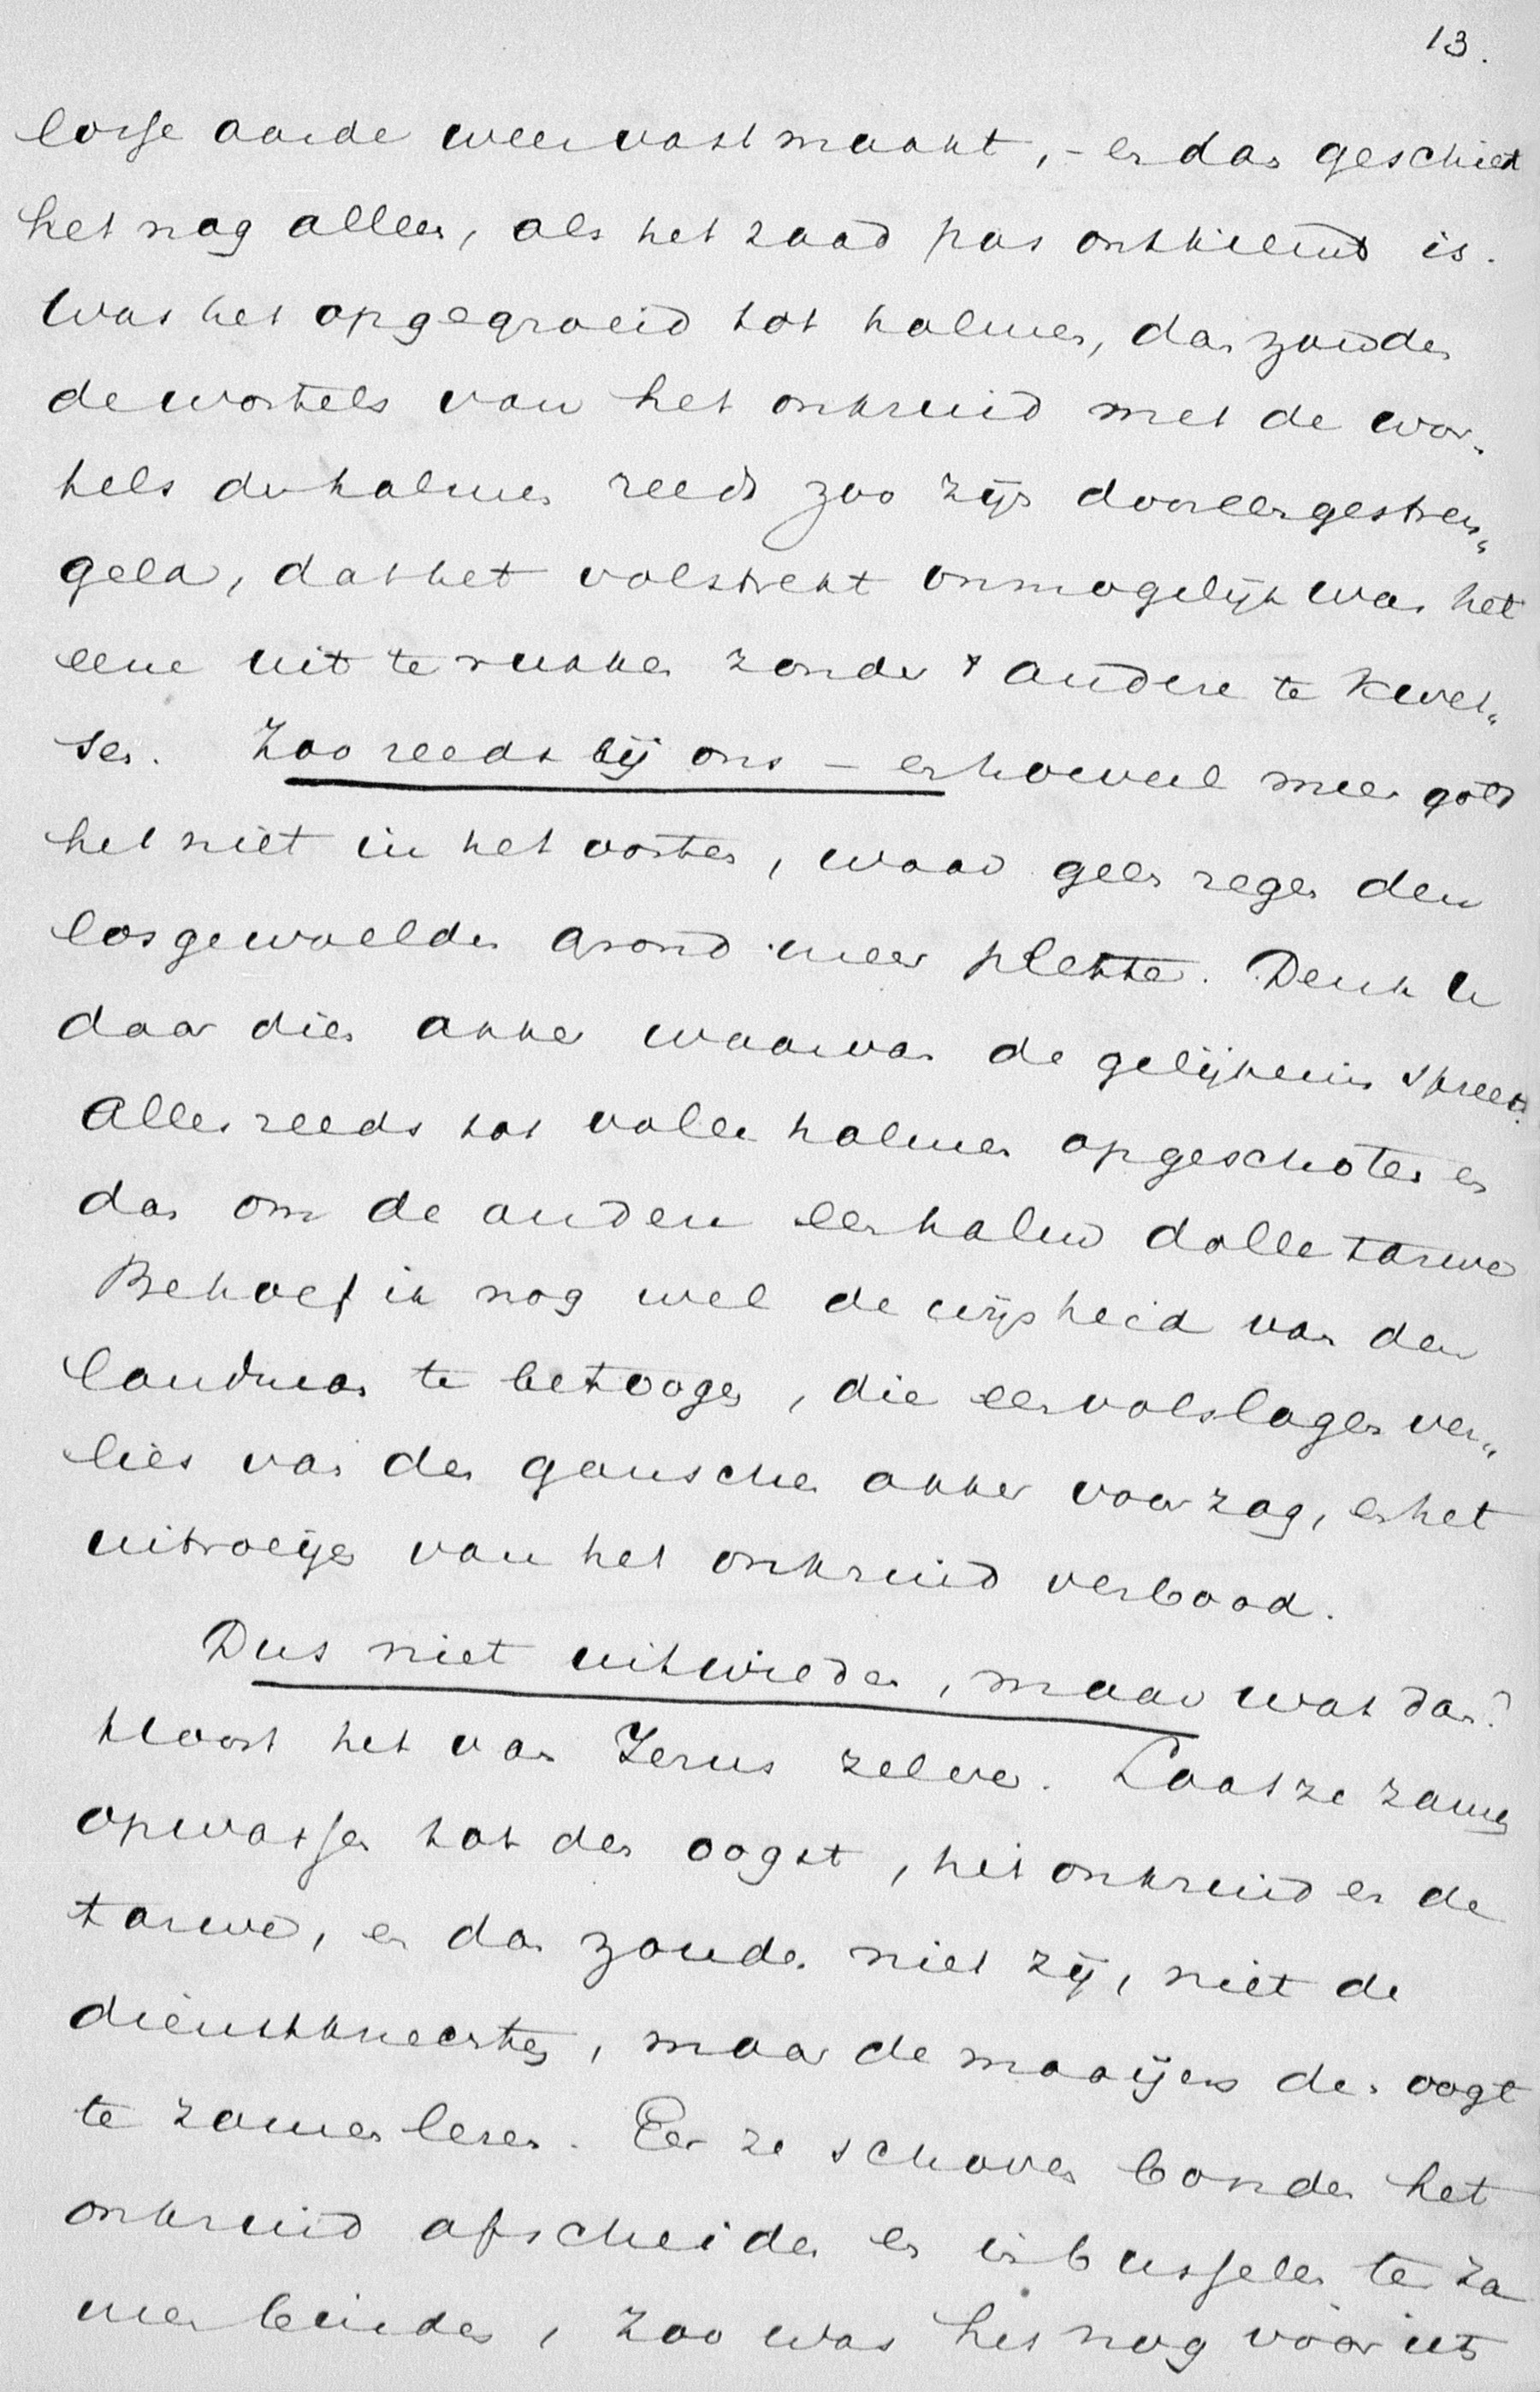 13.
losse aarde weer vast maakt, – en dan geschiedt
het nog alleen, als het zaad pas ontkiemd is.
Was het opgegroeid tot halmen, dan zouden
de wortels van het onkruid met de wor-
tels der halmen reeds zoo zijn dooreengestren„
geld, dat het volstrekt onmogelijk was het
eene uit te rukken zonder 't andere te kwet„
sen. Zoo reeds bij ons – en hoeveel meer gold
het niet in het oosten, waar geen regen den
losgewoelden grond meer plekte. Denk U
daar dien akker waarvan de gelijkenis spreekt.
Alles reeds tot volle halmen opgeschoten en
dan om de andere een halm dolle tarwe
Behoef ik nog wel de wijsheid van den
landman te betoogen, die een volslagen ver„
lies van den ganschen akker voorzag, en het
uitroeijen van het onkruid verbood.
Dus niet uitwieden, maar wat dan?
Hoort het van Jezus zelven. Laat ze zamen
opwassen tot den oogst, het onkruid en de
tarwe, en dan zouden niet zij, niet de
dienstknechten, maar de maaijers den oogst
te zamen lezen. Eer ze schoven bonden het
onkruid afscheiden en in busselen te za
men binden, zoo was het nog vóór het